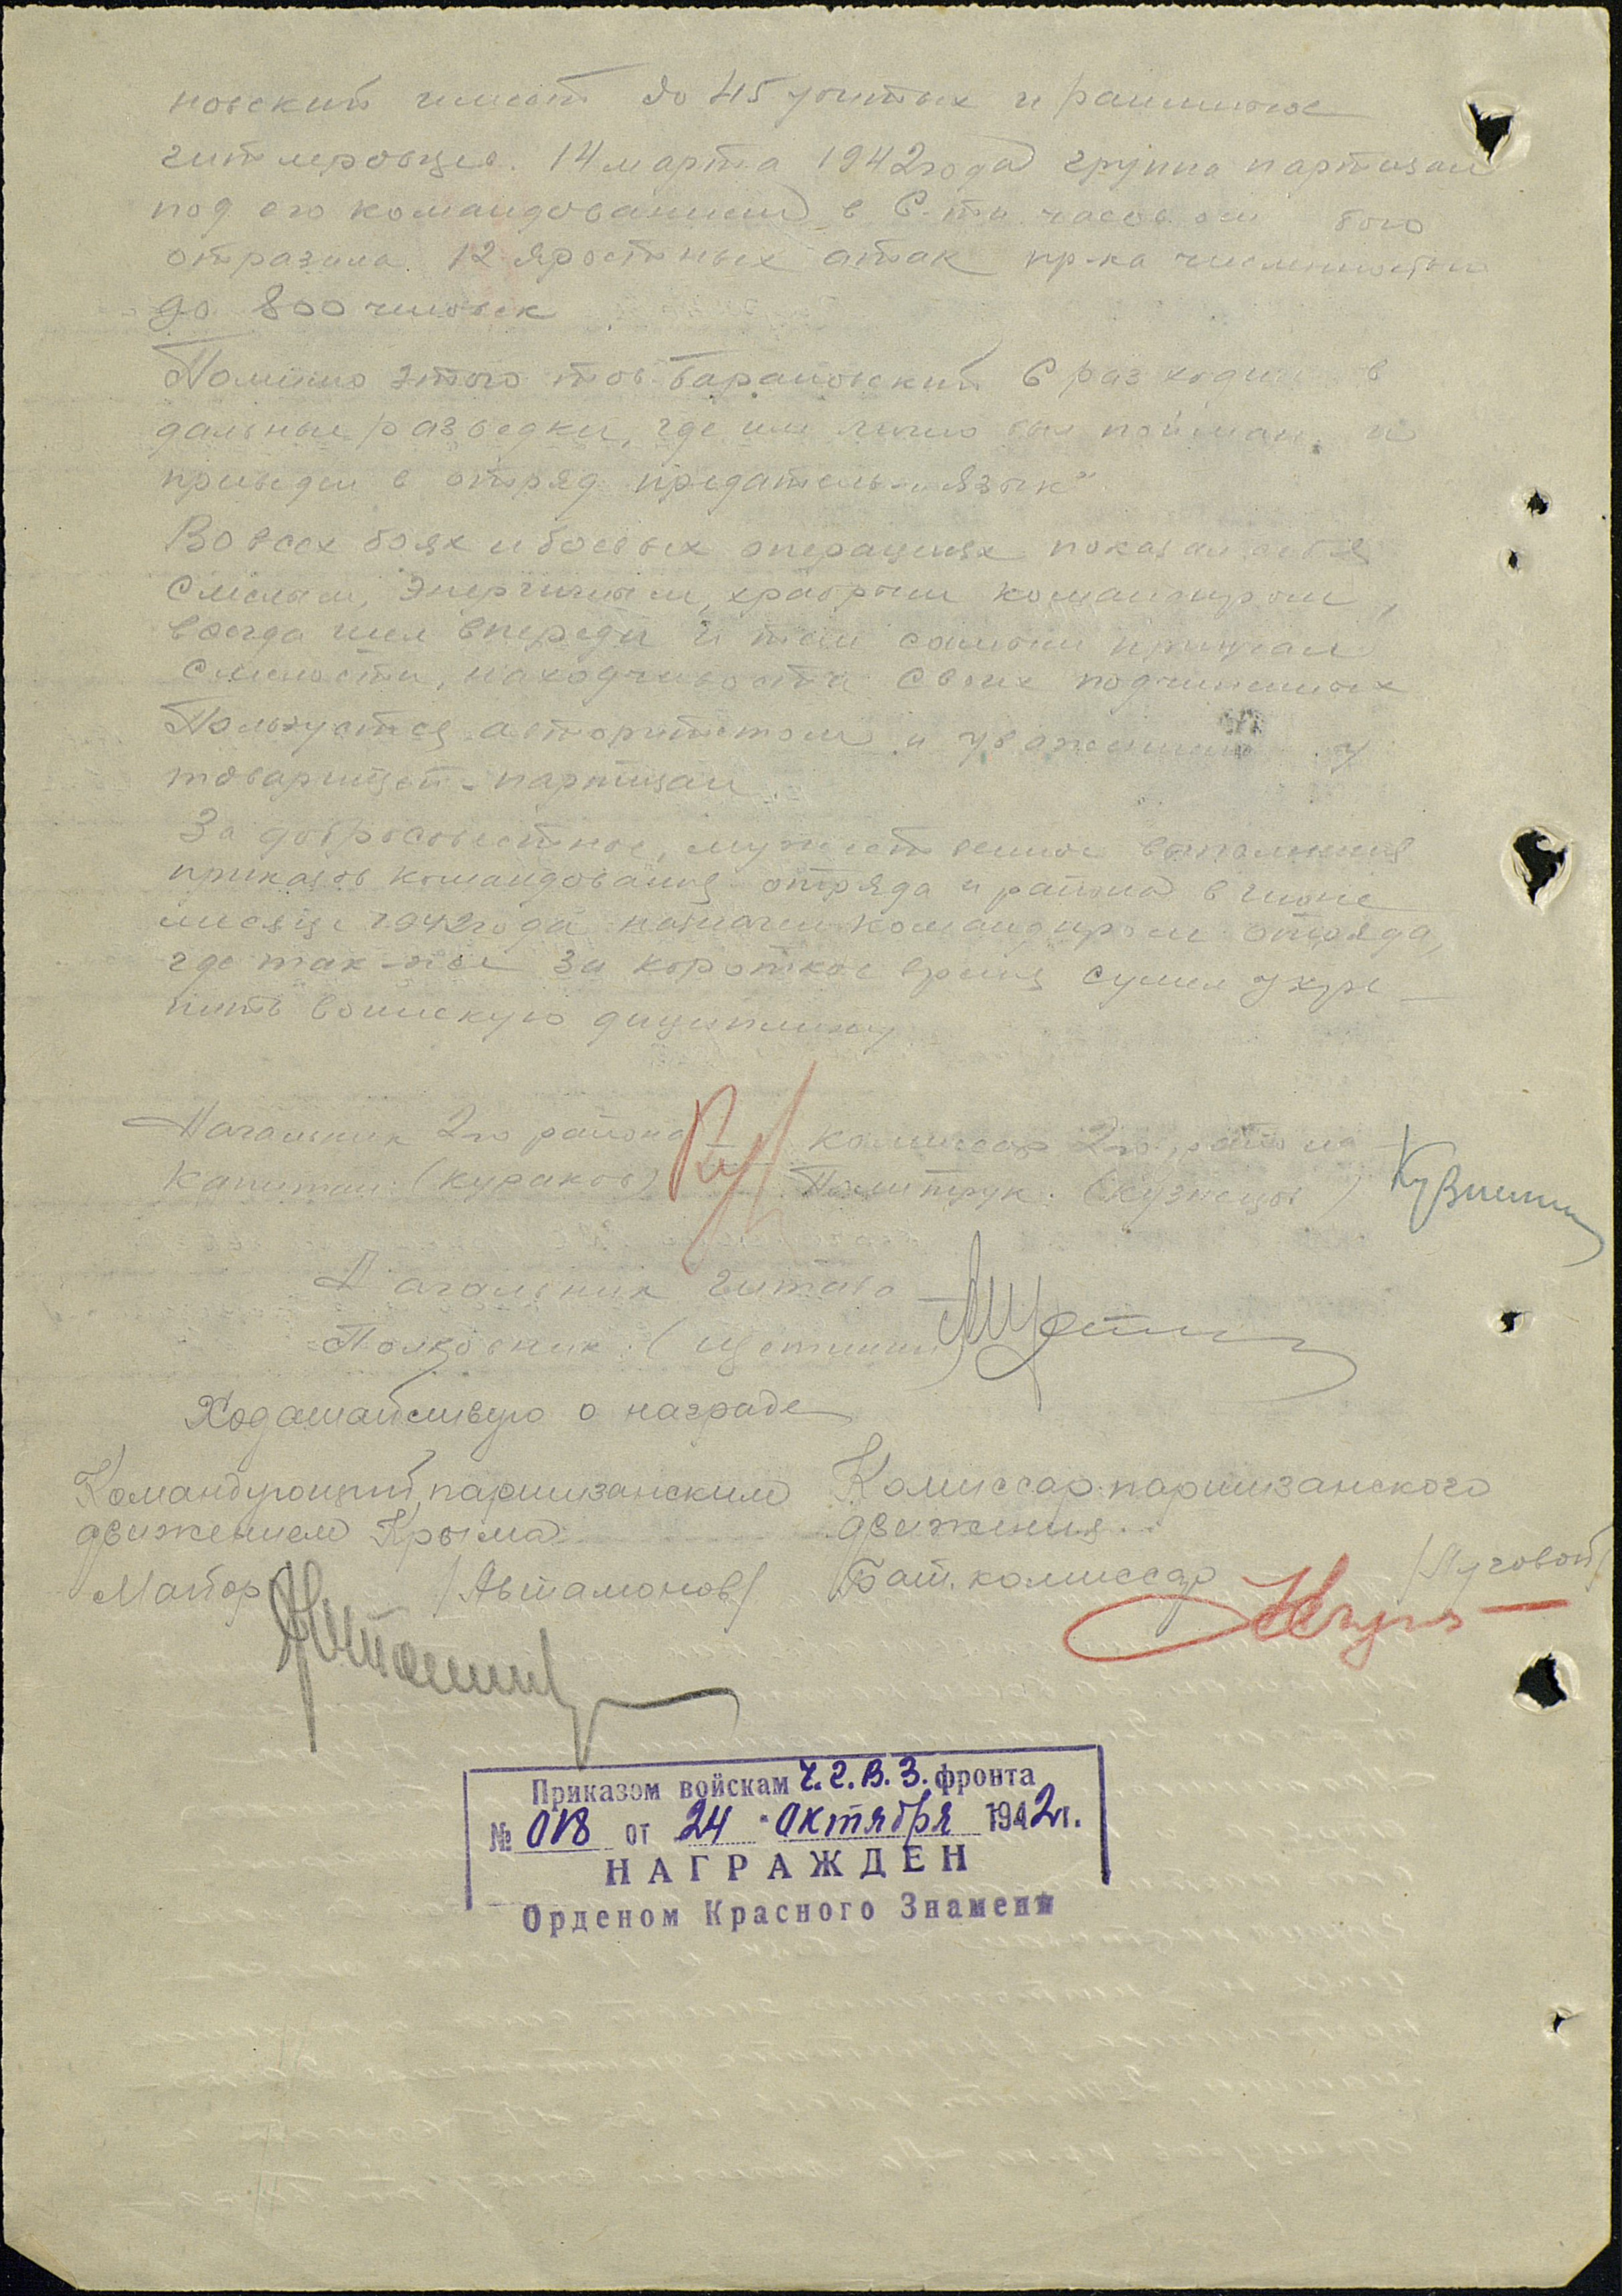 новский имеет до 45 убитых и раненных
гитлеровцев. 14 марта 1942 года группа партизан
под его командованием в 6-ти часовом бою
отразила 12 яростных атак пр-ка численностью
до 800 человек
Помимо этого тов. Барановский 6 раз ходил в
дальные разведки, где им лично был пойман и
приведен в отряд предатель-„язык"
Во всех боях и боевых операциях показал себя
смелым, энергичным, храбрым командиром,
всегда шел впереди и тем самым приучал
смелости, находчивости своих подчиненных
Пользуется авторитетом и уважением у
товарищей-партизан.
За добросовестное, мужественное выполнение
приказов командования отряда и района в июне
месяце 1942 года назначен командиром отряда,
где так-же за короткое время сумел укре-
пить воинскую дисциплину
Начальник 2го района Комиссар 2го района
Капитан: (Кураков) Политрук: (Кузнецов)
Начальник штаба
Полковник: (Щетинин)
Ходатайствую о награде
Командующий партизанским Комиссар партизанского
движением Крыма движения
Майор /Автамонов/ Бат. комиссар /Луговой/
Приказом войскам Ч.Г.В.З. фронта
№ 018 от 24 Октября 1942 г.
НАГРАЖДЕН
Орденом Красного Знамени